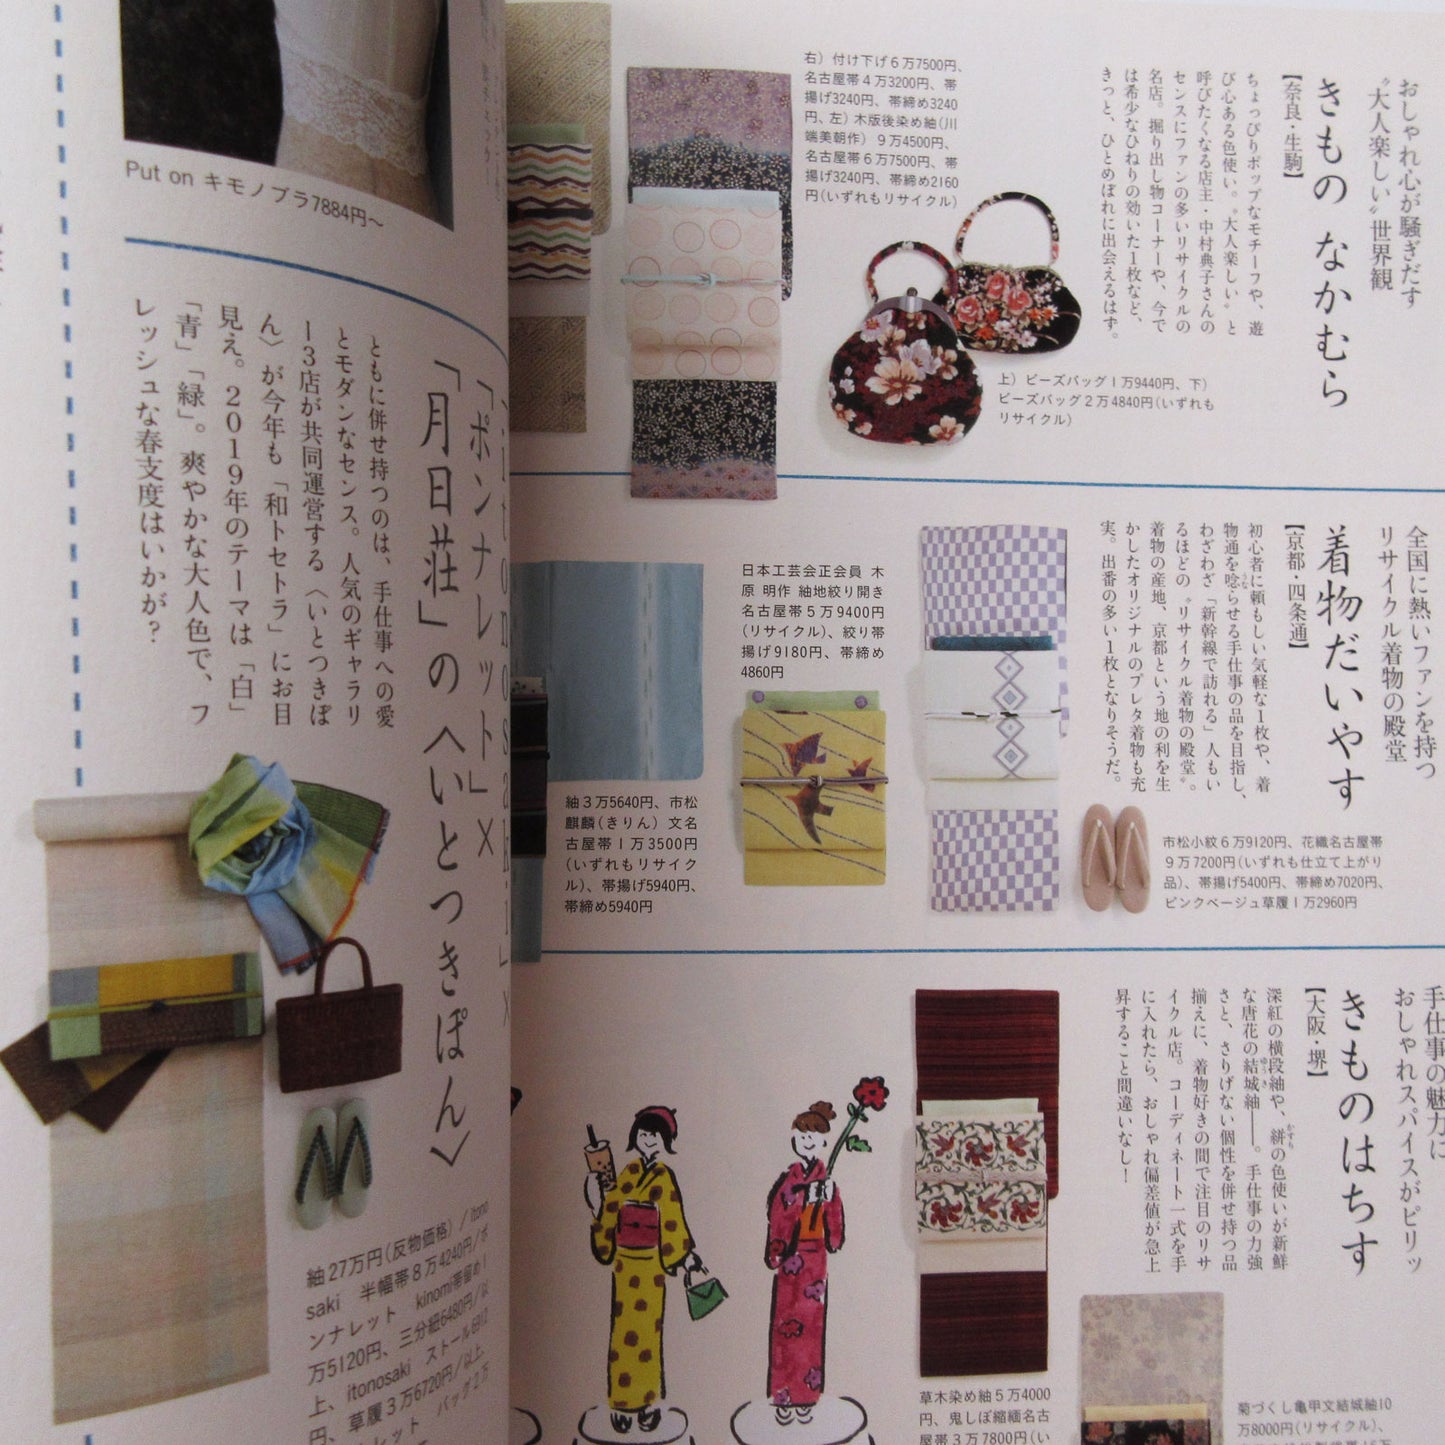 おしゃれ心が騒ぎだす
“大人楽しい”世界観
きもの なかむら
【奈良・生駒】
ちょっぴりポップなモチーフや、遊
び心ある色使い。“大人楽しい”と
呼びたくなる店主・中村典子さんの
センスにファンの多いリサイクルの
名店。掘り出し物コーナーや、今で
は希少なひねりの効いた1枚など、
きっと、ひとめぼれに出会えるはず。
右）付け下げ6万7500円、
名古屋帯4万3200円、帯
揚げ3240円、帯締め3240
円、左）木版後染め紬(川
端美朝作）9万4500円、
名古屋帯6万7500円、帯
揚げ3240円、帯締め2160
円(いずれもリサイクル)
上）ビーズバッグ1万9440円、下）
ビーズバッグ2万4840円(いずれも
リサイクル)
全国に熱いファンを持つ
リサイクル着物の殿堂
着物だいやす
【京都・四条通】
初心者に頼もしい気軽な1枚や、着
物通を唸らせる手仕事の品を目指し、
わざわざ「新幹線で訪れる」人もい
るほどの“リサイクル着物の殿堂”。
着物の産地、京都という地の利を生
かしたオリジナルのプレタ着物も充
実。出番の多い1枚となりそうだ。
日本工芸会正会員 木
原 明作 紬地絞り開き
名古屋帯5万9400円
(リサイクル)、絞り帯
揚げ9180円、帯締め
4860円
紬3万5640円、市松
麒麟(きりん）文名
古屋帯1万3500円
(いずれもリサイク
ル)、帯揚げ5940円、
帯締め5940円
市松小紋6万9120円、花織名古屋帯
9万7200円(いずれも仕立て上がり
品)、帯揚げ5400円、帯締め7020円、
ピンクベージュ草履1万2960円
手仕事の魅力に
おしゃれスパイスがピリッ
きものはちす
【大阪・堺】
深紅の横段紬や、絣の色使いが新鮮
な唐花の結城紬――。手仕事の力強
さと、さりげない個性を併せ持つ品
揃えに、着物好きの間で注目のリサ
イクル店。コーディネート一式を手
に入れたら、おしゃれ偏差値が急上
昇すること間違いなし！
草木染め紬5万4000
円、鬼しぼ縮緬名古
屋帯3万7800円(い
菊づくし亀甲文結城紬10
万8000円(リサイクル)、
Put on キモノブラ7884円～
「itonosaki」×
「ポンナレット」×
「月日荘」の〈いとつきぽん〉
ともに併せ持つのは、手仕事への愛
とモダンなセンス。人気のギャラリ
ー3店が共同運営する〈いとつきぽ
ん〉が今年も「和トセトラ」にお目
見え。2019年のテーマは「白」
「青」「緑」。爽やかな大人色で、フ
レッシュな春支度はいかが？
紬27万円(反物価格）/ itono
saki 半幅帯8万4240円/ポ
ンナレット kinomi帯留め1
万5120円、三分紐6480円/以
上、itonosaki ストール6912
円、草履3万6720円/以上、
レット バッグ2万